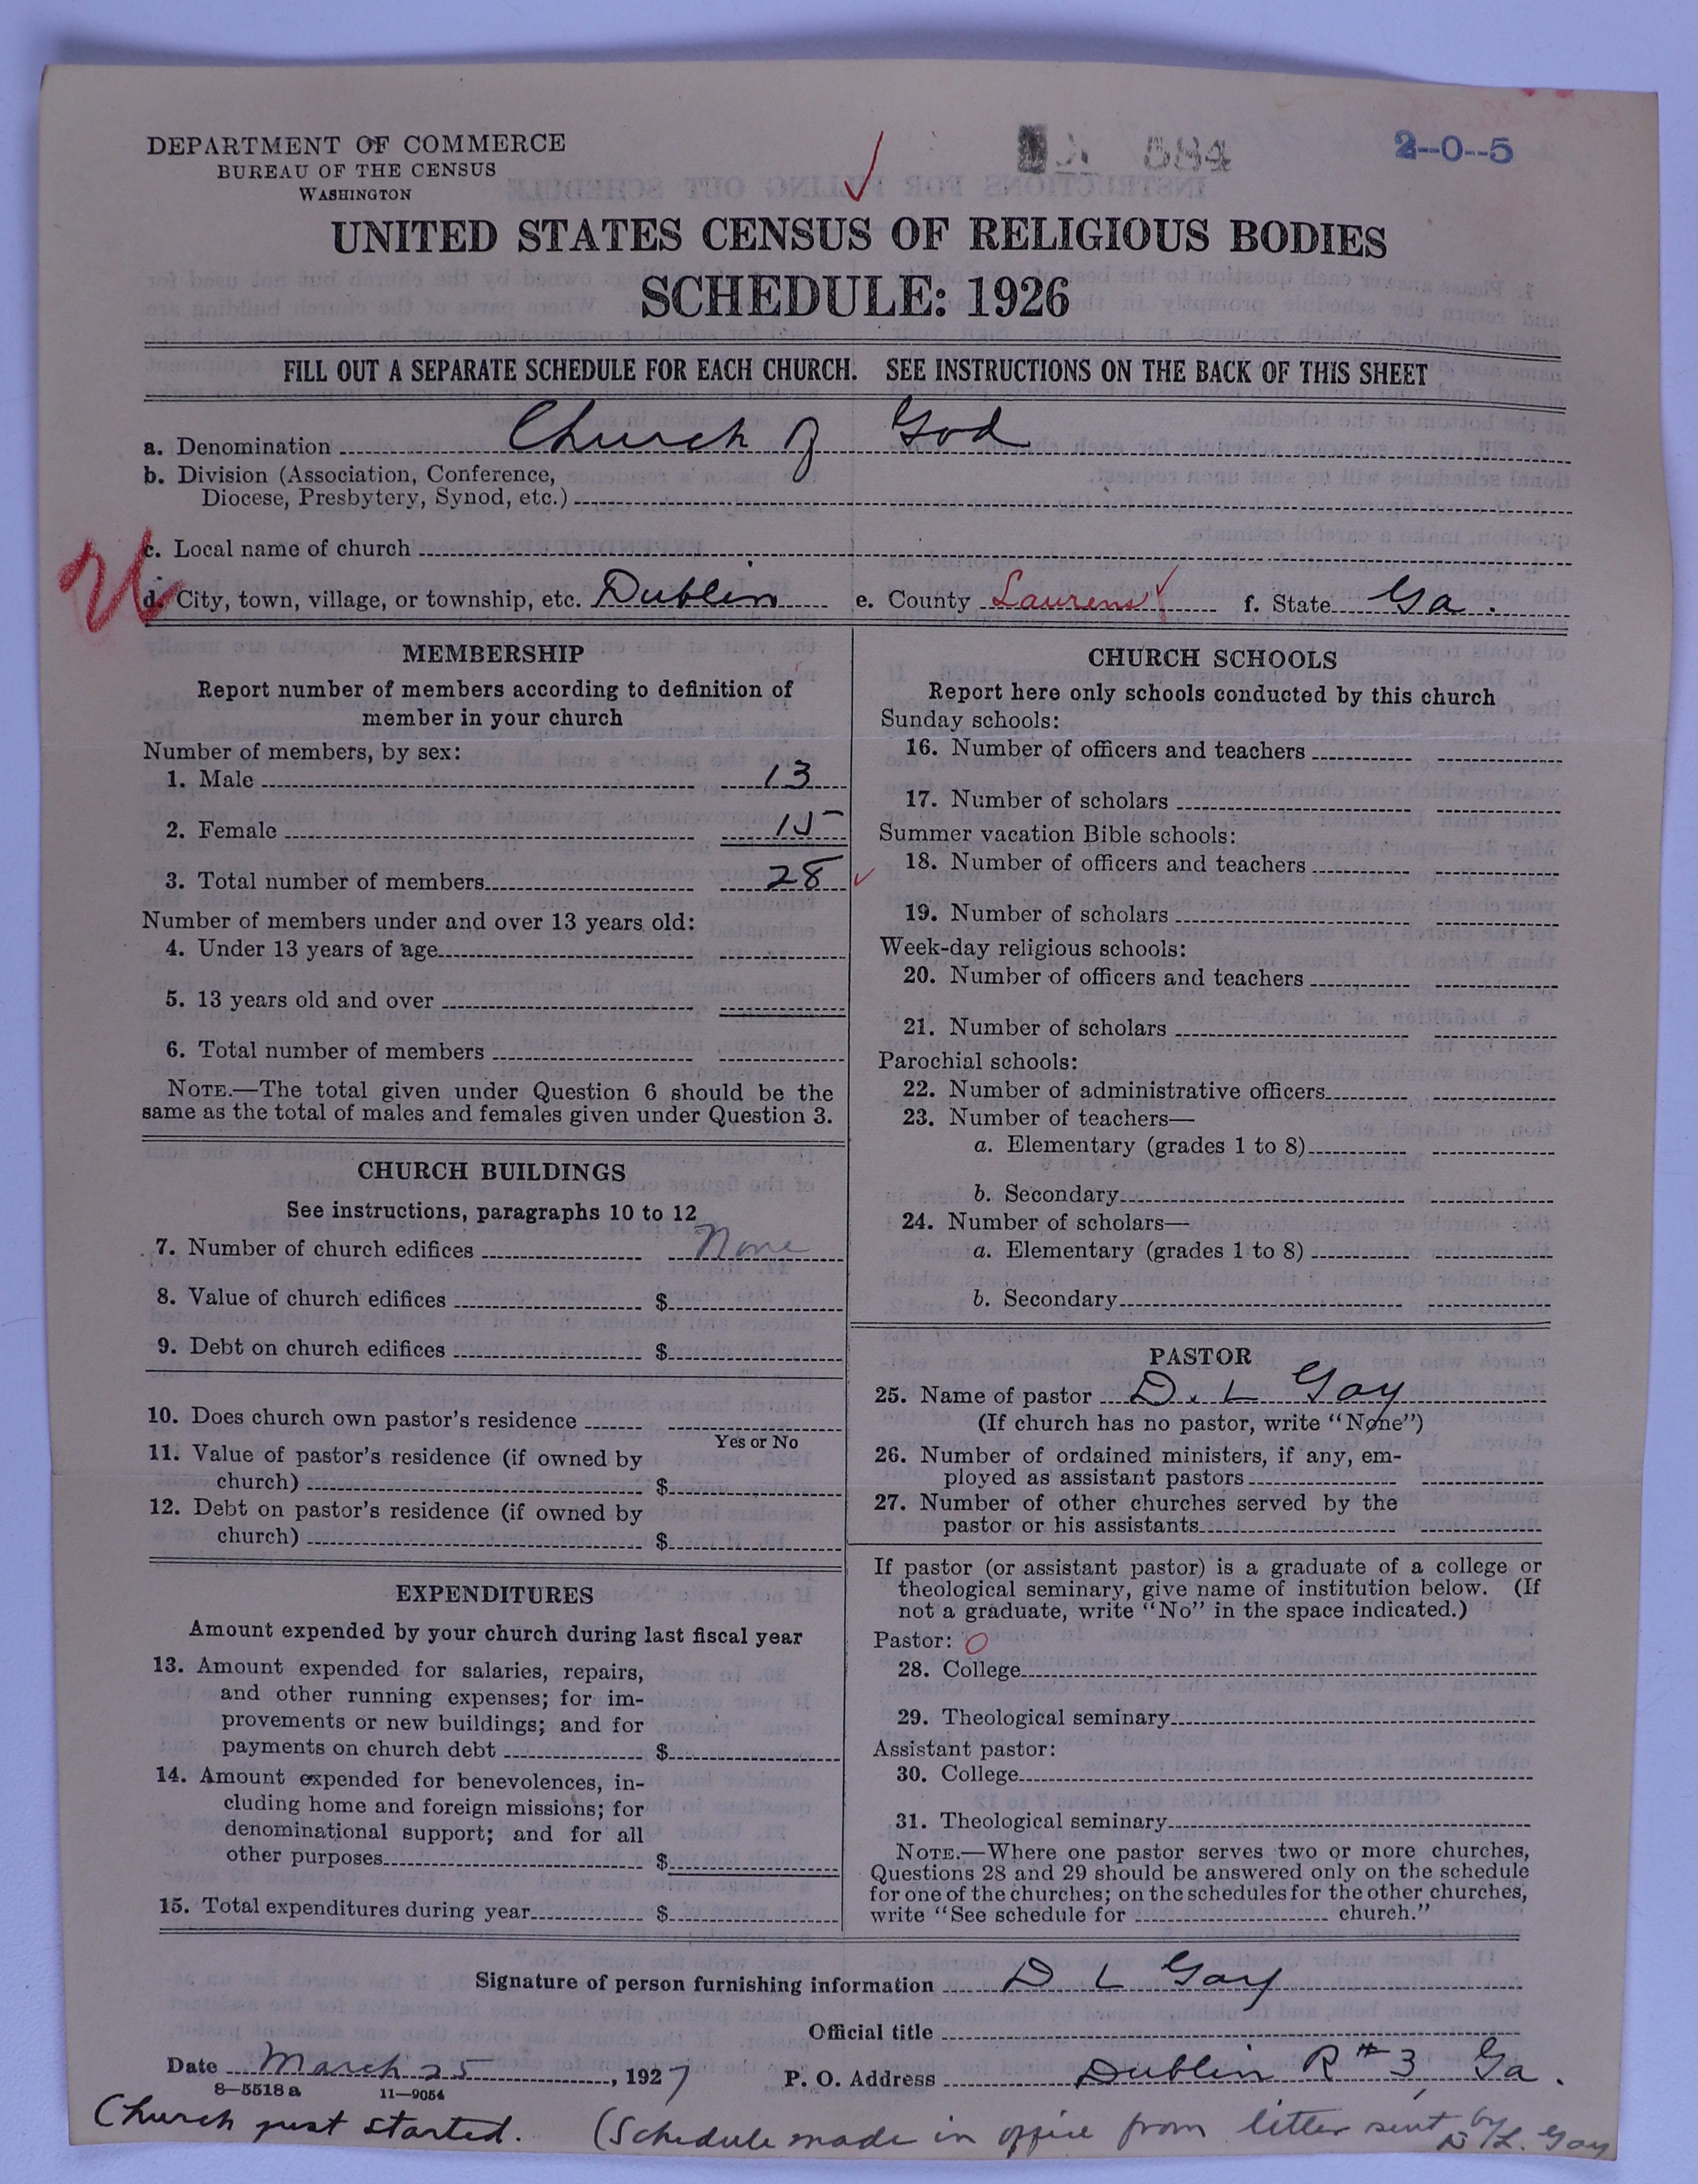 DEPARTMENT OF COMMERCE
BUREAU OF THE CENSUS
WASHINGTON
2-0-5
UNITED STATES CENSUS OF RELIGIOUS BODIES
SCHEDULE: 1926
FILL OUT A SEPARATE SCHEDULE FOR EACH CHURCH. SEE INSTRUCTIONS ON THE BACK OF THIS SHEET
a. Denomination Church of God
b. Division (Association, Conference,
Diocese, Presbytery, Synod, etc.)
c. Local name of church
d. City, town, village, or township, etc. Dublin e. County Laurens f. State Ga.
MEMBERSHIP
Report number of members according to definition of
member in your church
Number of members, by sex:
1. Male 13
2. Female 15
3. Total number of members 28
Number of members under and over 13 years old:
4. Under 13 years of age
5. 13 years old and over
6. Total number of members
NOTE.—The total given under Question 6 should be the
same as the total of males and females given under Question 3.
CHURCH BUILDINGS
See instructions, paragraphs 10 to 12
7. Number of church edifices None
8. Value of church edifices $
9. Debt on church edifices $
10. Does church own pastor's residence
Yes or No
11. Value of pastor's residence (if owned by
church) $
12. Debt on pastor's residence (if owned by
church) $
EXPENDITURES
Amount expended by your church during last fiscal year
13. Amount expended for salaries, repairs,
and other running expenses; for im-
provements or new buildings; and for
payments on church debt $
14. Amount expended for benevolences, in-
cluding home and foreign missions; for
denominational support; and for all
other purposes $
15. Total expenditures during year $
CHURCH SCHOOLS
Report here only schools conducted by this church
Sunday schools:
16. Number of officers and teachers
17. Number of scholars
Summer vacation Bible schools:
18. Number of officers and teachers
19. Number of scholars
Week-day religious schools:
20. Number of officers and teachers
21. Number of scholars
Parochial schools:
22. Number of administrative officers
23. Number of teachers—
a. Elementary (grades 1 to 8)
b. Secondary
24. Number of scholars—
a. Elementary (grades 1 to 8)
b. Secondary
PASTOR
25. Name of pastor D. L Gay
(If church has no pastor, write "None")
26. Number of ordained ministers, if any, em-
ployed as assistant pastors
27. Number of other churches served by the
pastor or his assistants
If pastor (or assistant pastor) is a graduate of a college or
theological seminary, give name of institution below. (If
not a graduate, write "No" in the space indicated.)
Pastor: O
28. College
29. Theological seminary
Assistant pastor:
30. College
31. Theological seminary
NOTE.—Where one pastor serves two or more churches,
Questions 28 and 29 should be answered only on the schedule
for one of the churches; on the schedules for the other churches,
write "See schedule for church."
Signature of person furnishing information D L Gay
Official title
Date March 25, 1927 P. O. Address Dublin R#3, Ga.
8-5518a 11-9054
Church just started. (Schedule made in office from letter sent by D. L. Gay